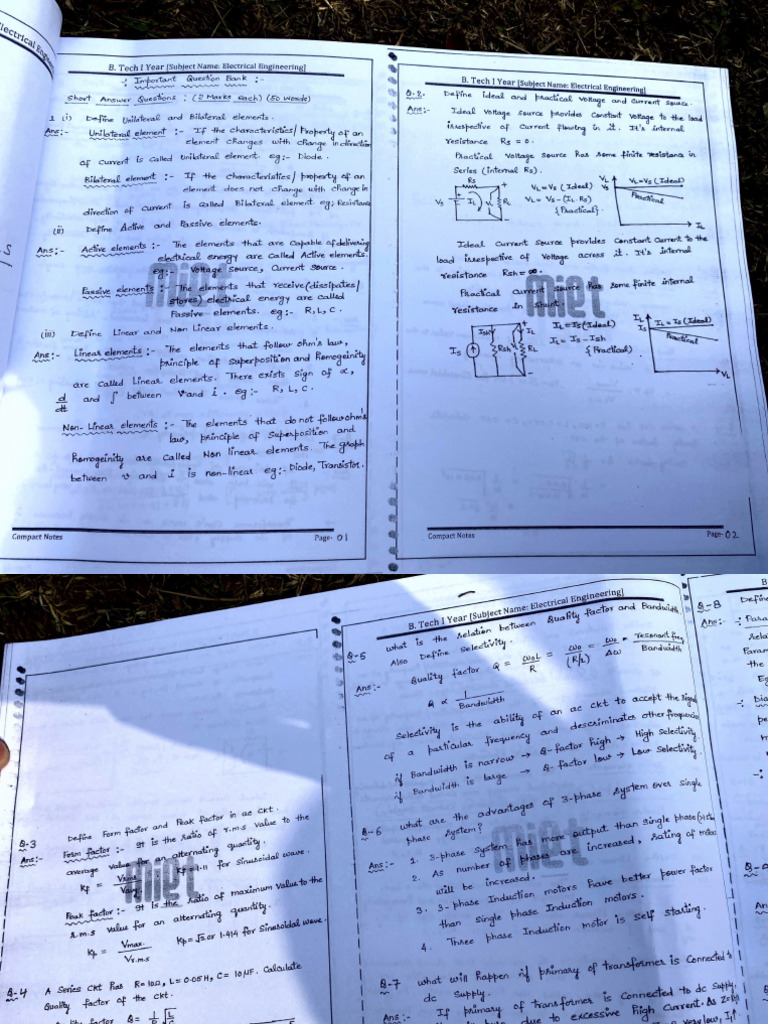 B. Tech I Year [Subject Name: Electrical Engineering]
:- Important Question Bank :-
Short Answer Questions : (2 Marks Each) (50 Words)
1 (i) Define Unilateral and Bilateral elements.
Ans:- Unilateral element :- If the characteristics/Property of an
element changes with change in direction
of current is called Unilateral element. eg:- Diode.
Bilateral element :- If the characteristics/property of an
element does not change with change in
direction of current is called Bilateral element eg; Resistance
(ii) Define Active and Passive elements.
Ans:- Active elements :- The elements that are capable of delivering
electrical energy are called Active elements.
eg:- Voltage source, Current source.
Passive elements :- The elements that receive(dissipates/
stores) electrical energy are called
Passive elements. eg:- R, L, C.
(iii) Define Linear and Non Linear elements.
Ans:- Linear elements :- The elements that follow ohm's law,
principle of superposition and Homogeinity
are called Linear elements. There exists sign of ∝,
d/dt and ∫ between v and i. eg:- R, L, C.
Non-Linear elements :- The elements that do not follow ohm's
law, principle of superposition and
Homogeinity are called Non linear elements. The graph
between v and i is non-linear eg:- Diode, Transistor.
miet
Compact Notes Page- 01
B. Tech I Year [Subject Name: Electrical Engineering]
Q.2. Define ideal and practical voltage and current source.
Ans:- Ideal voltage source provides constant voltage to the load
irrespective of current flowing in it. It's internal
resistance Rs = 0.
Practical voltage source has some finite resistance in
series (internal Rs).
Rs
Vs IL VL RL
VL = Vs (Ideal)
VL = Vs - (IL·Rs)
{Practical}.
VL
Vs
VL = Vs (Ideal)
Practical
IL
Ideal current source provides constant current to the
load irrespective of voltage across it. It's internal
resistance Rsh = ∞.
Practical current source has some finite internal
resistance in shunt.
miet
Ish IL
Is Rsh VL RL
IL = Is (Ideal)
IL = Is - Ish
{Practical}
IL
Is
IL = Is (Ideal)
Practical
VL
Compact Notes Page- 02
Q-3 Define Form factor and Peak factor in ac ckt.
Ans:- Form factor :- It is the ratio of r.m.s value to the
average value for an alternating quantity.
Kf = Vrms/Vavg Kf = 1.11 for sinusoidal wave.
Peak factor :- It is the ratio of maximum value to the
r.m.s value for an alternating quantity.
Kp = Vmax./Vr.m.s Kp = √2 or 1.414 for Sinusoidal wave.
miet
Q-4 A Series ckt has R= 10Ω, L= 0.05H, C= 10μF. Calculate
Quality factor of the ckt.
factor Q = 1/R √L/C
B. Tech I Year [Subject Name: Electrical Engineering]
Q-5 what is the relation between Quality factor and Bandwidth.
Also Define Selectivity.
Ans:- Quality factor Q = ω₀L/R = ω₀/(R/L) = ω₀/Δω = resonant freq/Bandwidth
Q ∝ 1/Bandwidth
Selectivity is the ability of an ac ckt to accept the signal
of a particular frequency and descriminates other frequencies
if Bandwidth is narrow → Q-factor high → High Selectivity
if Bandwidth is large → Q-factor low → Low Selectivity.
Q-6 what are the advantages of 3-phase system over single
phase system?
miet
Ans:- 1. 3-phase system has more output than single phase
2. As number of phases are increased, rating of motor
will be increased.
3. 3-phase Induction motors have better power factor
than single phase Induction motors.
4. Three phase Induction motor is self starting.
Q-7 what will happen if primary of transformer is connected to
dc supply.
Ans:- If primary of transformer is connected to dc supply,
due to excessive high current. As
very low,
Q-8 Define
Ans:- Para